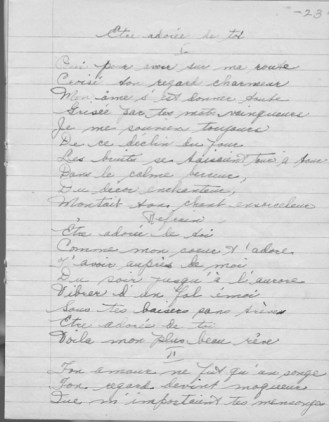 -23
Etre adorée de toi
I
Oui un soir sur ma route
Croisé ton regard charmeur
Mon âme s'est donner toute
Grisée par tes mots vainqueurs
Je me souviens toujours
De ce déclin du jour
Les bruits se taisaient tour à tour
Dans le calme berceur,
Du décor enchanteur,
Montait son chant
Refrain
Être adorée de toi
Comme mon coeur t'adore
T'avoir auprès de moi
Du soir jusqu'à l'aurore
Vibrer d'un fol émoi
Sous tes baisers sans trève
Etre adorée de toi
Voila mon plus beau rêve
II
Ton amour ne fut qu'un songe
Ton regard devint moqueur
Que m'importaient tes mensonges